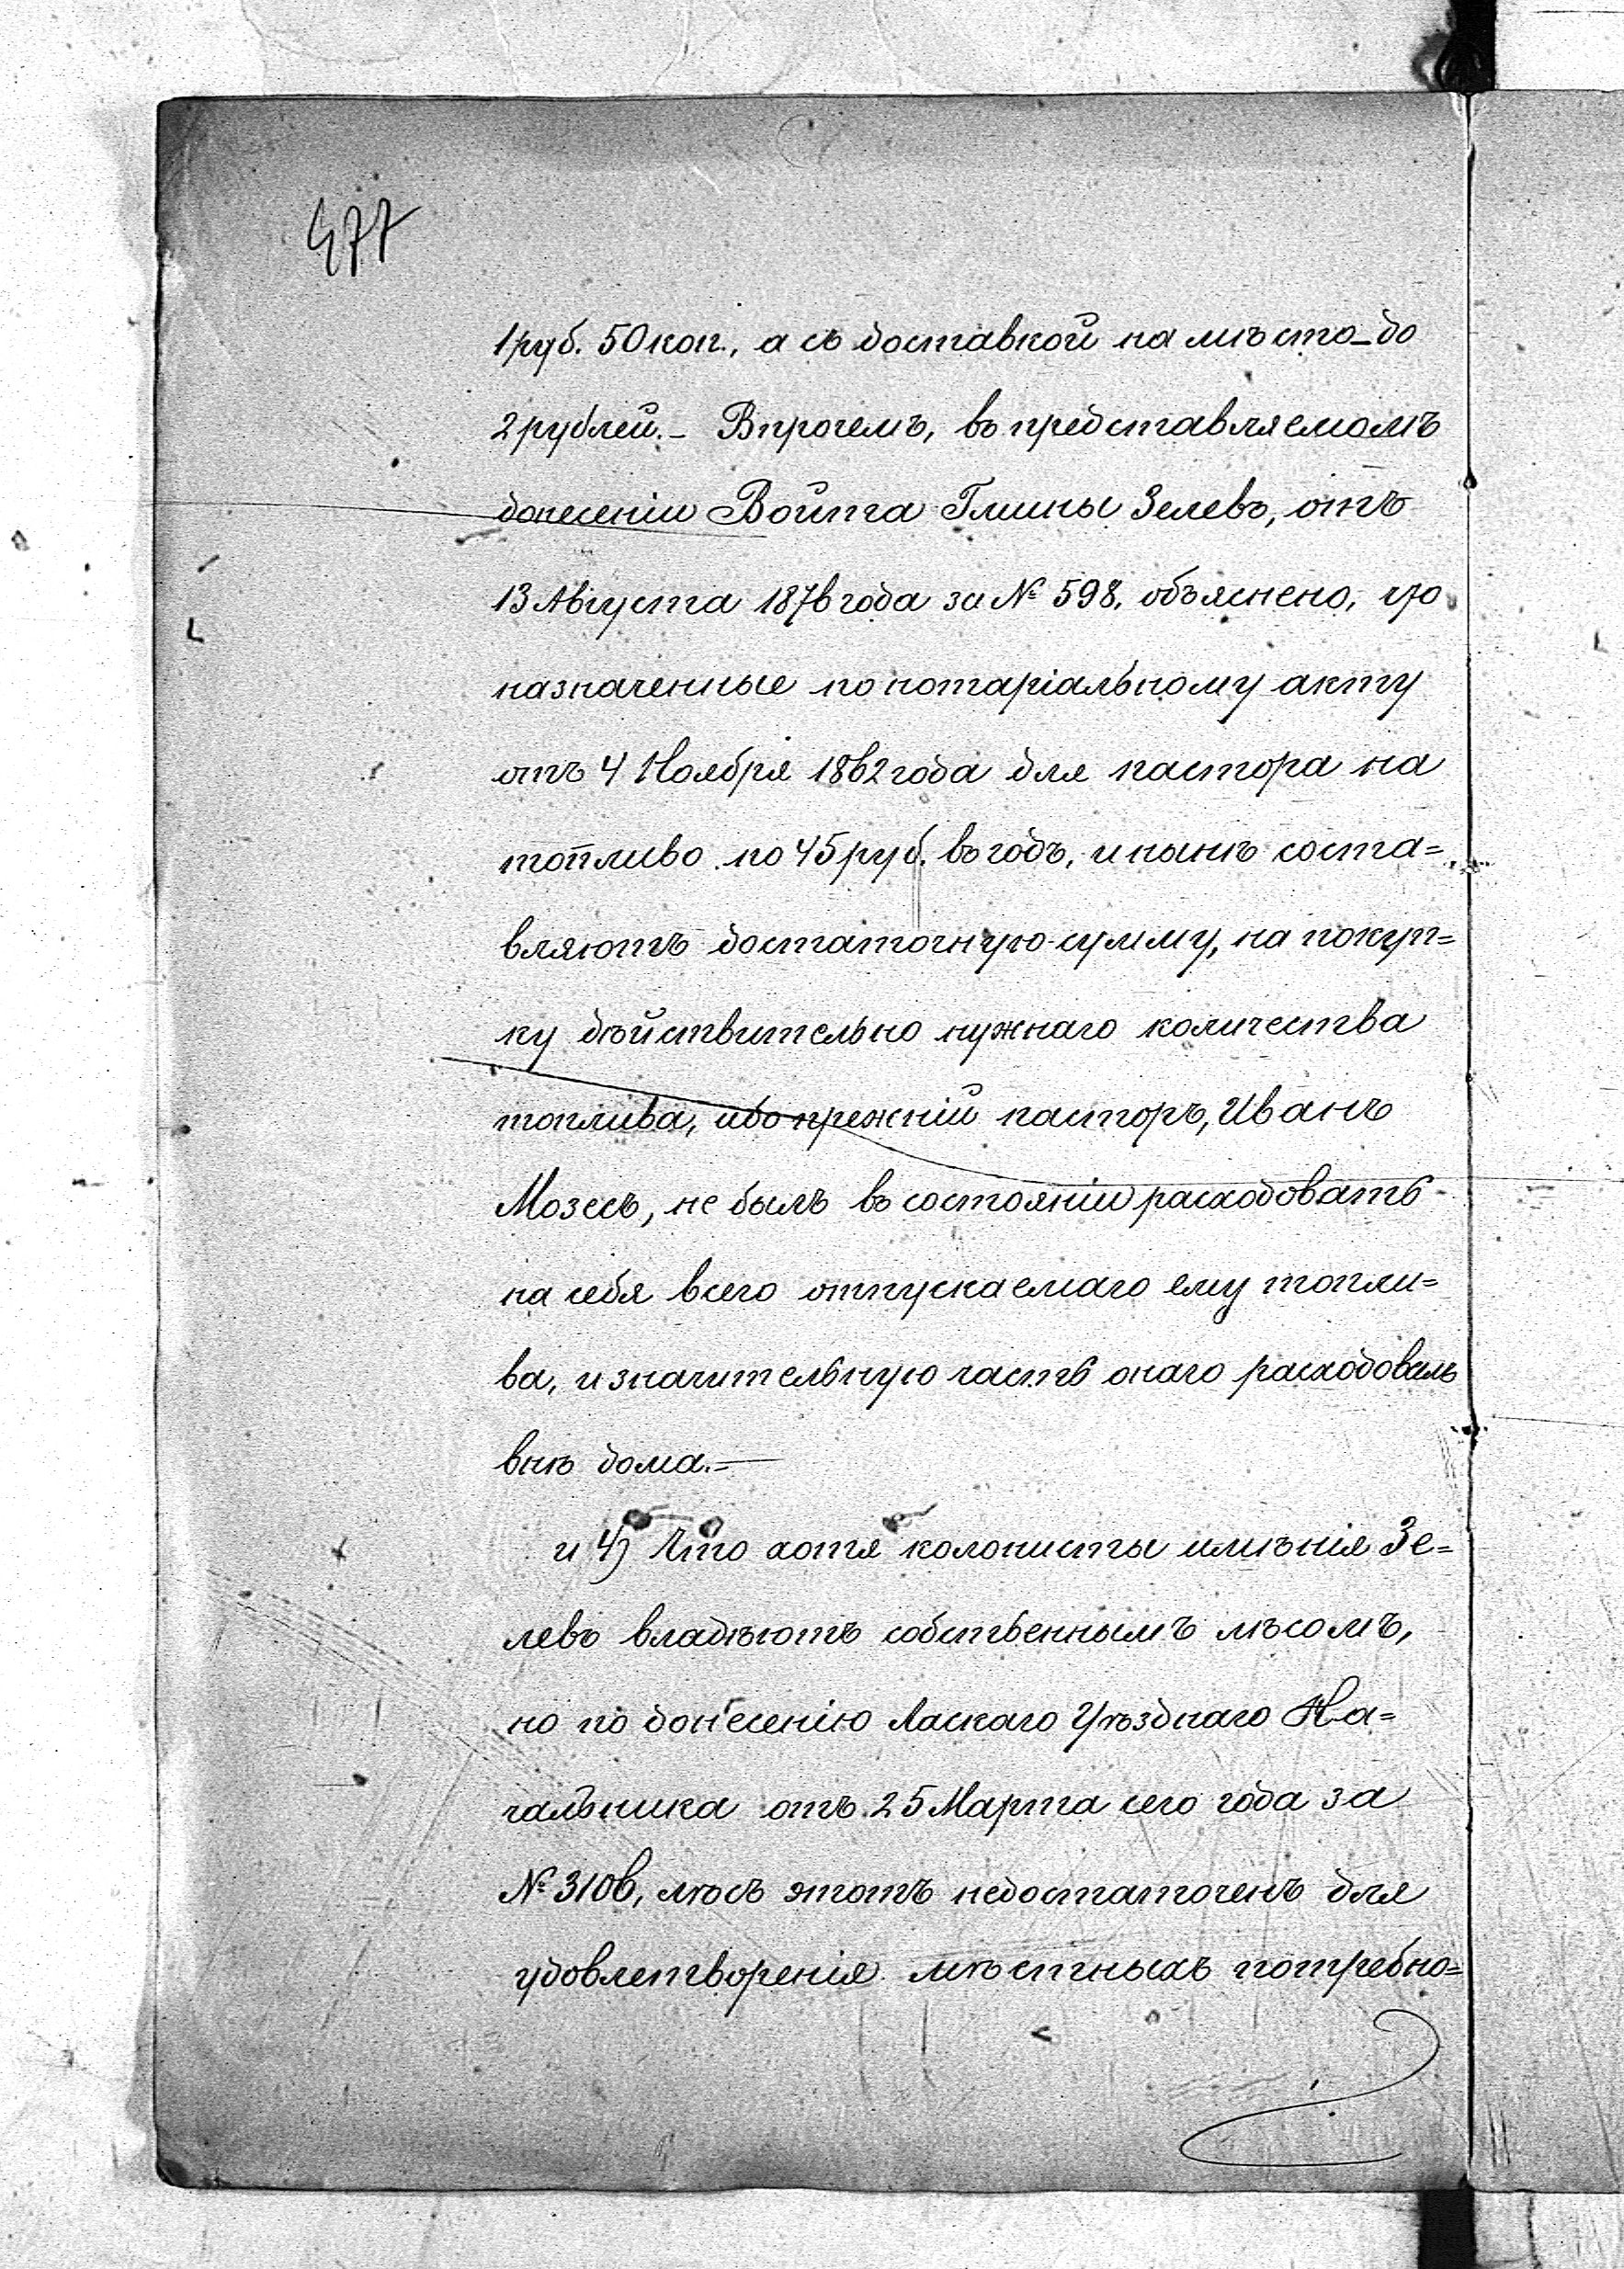 477
1 руб. 50 коп., а съ доставкой на мѣсто – до
2 рублей. – Впрочемъ, въ представляемомъ
донесеніи Войта Гмины Зелевъ, отъ
13 Августа 1876 года за № 598, объяснено, что
назначенные по нотаріальному акту
отъ 4 Ноября 1862 года для пастора на
топливо по 45 руб. въ годъ, и нынѣ соста=
вляютъ достаточную сумму, на покуп=
ку дѣйствительно нужнаго количества
топлива, ибо прежній пасторъ, Иванъ
Мозесъ, не былъ въ состояніи расходовать
на себя всего отпускаемаго ему топли=
ва, и значительную часть онаго расходовалъ
внѣ дома. =
и 4) Что хотя колонисты имѣнія Зе=
левъ владѣютъ собственнымъ лѣсомъ,
но по донесенію Ласкаго Уѣзднаго На=
чальника отъ 25 Марта сего года за
№ 3106, лѣсъ этотъ недостаточенъ для
удовлетворенія мѣстныхъ потребно=